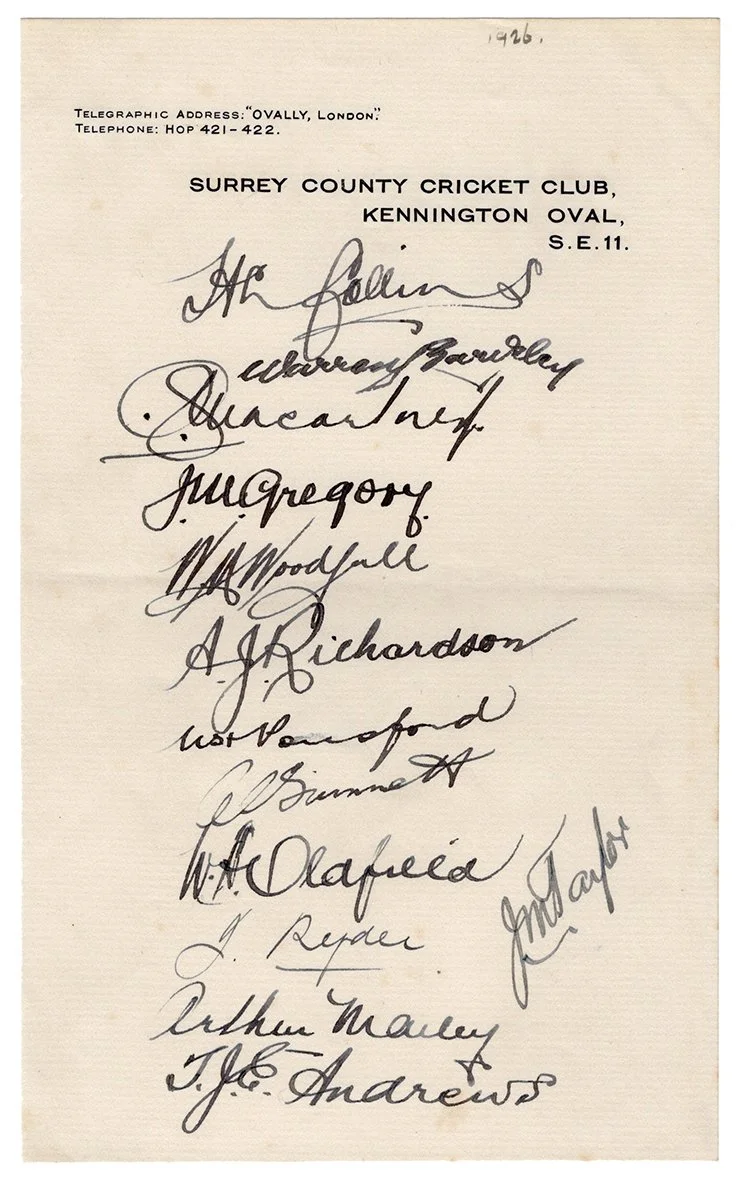 1926.
TELEGRAPHIC ADDRESS: "OVALLY, LONDON."
TELEPHONE: HOP 421-422.
SURREY COUNTY CRICKET CLUB,
KENNINGTON OVAL,
S.E.11.
H L Collins
Warren Bardsley
C G Macartney.
J.M. Gregory.
W.M Woodfull
A.J. Richardson
W H Ponsford
C V Grimmett
W.A. Oldfield
J M Taylor
J. Ryder
Arthur Mailey
T.J.E. Andrews